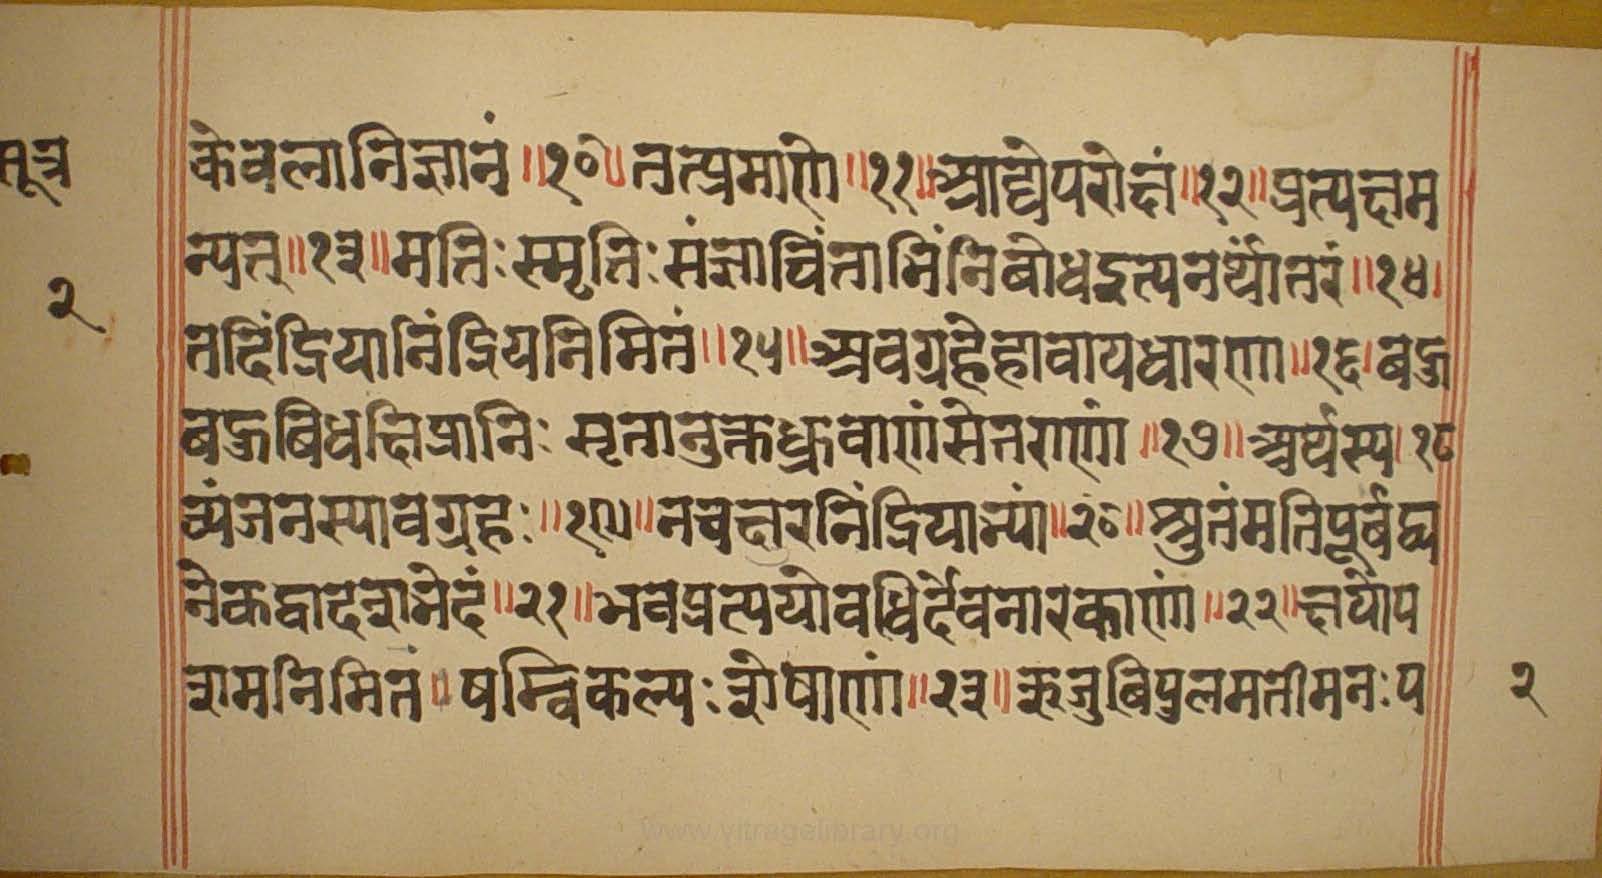 सूत्र
२
केवलानिज्ञानं ॥१०॥ तत्प्रमाणे ॥११॥ आद्येपरोक्षं ॥१२॥ प्रत्यक्षम
न्यत् ॥१३॥ मतिः स्मृतिः संज्ञाचिंताभिंनिबोधइत्यनर्थांतरं ॥१४।
तदिंद्रियानिंद्रियनिमितं ॥१५॥ अवग्रहेहावायधारणा ॥१६। बहु
बहुबिधक्षिप्रानिः सृतानुक्तध्रुवाणांसेतराणां ॥१७॥ अर्थस्य। १८
व्यंजनस्यावग्रहः ॥१९॥ नचक्षुरनिंद्रियाभ्यां ॥२०॥ श्रुतंमतिपूर्बंद्य
नेकद्वादशभेदं ॥२१॥ भवप्रत्ययोवधिर्देवनारकाणां ॥२२॥ क्षयोप
शमनिमितं ॥ षम्विकल्पः शेषाणां ॥२३॥ ऋजुबिपुलमतीमनःप
२
www.yjtragelibrary.org